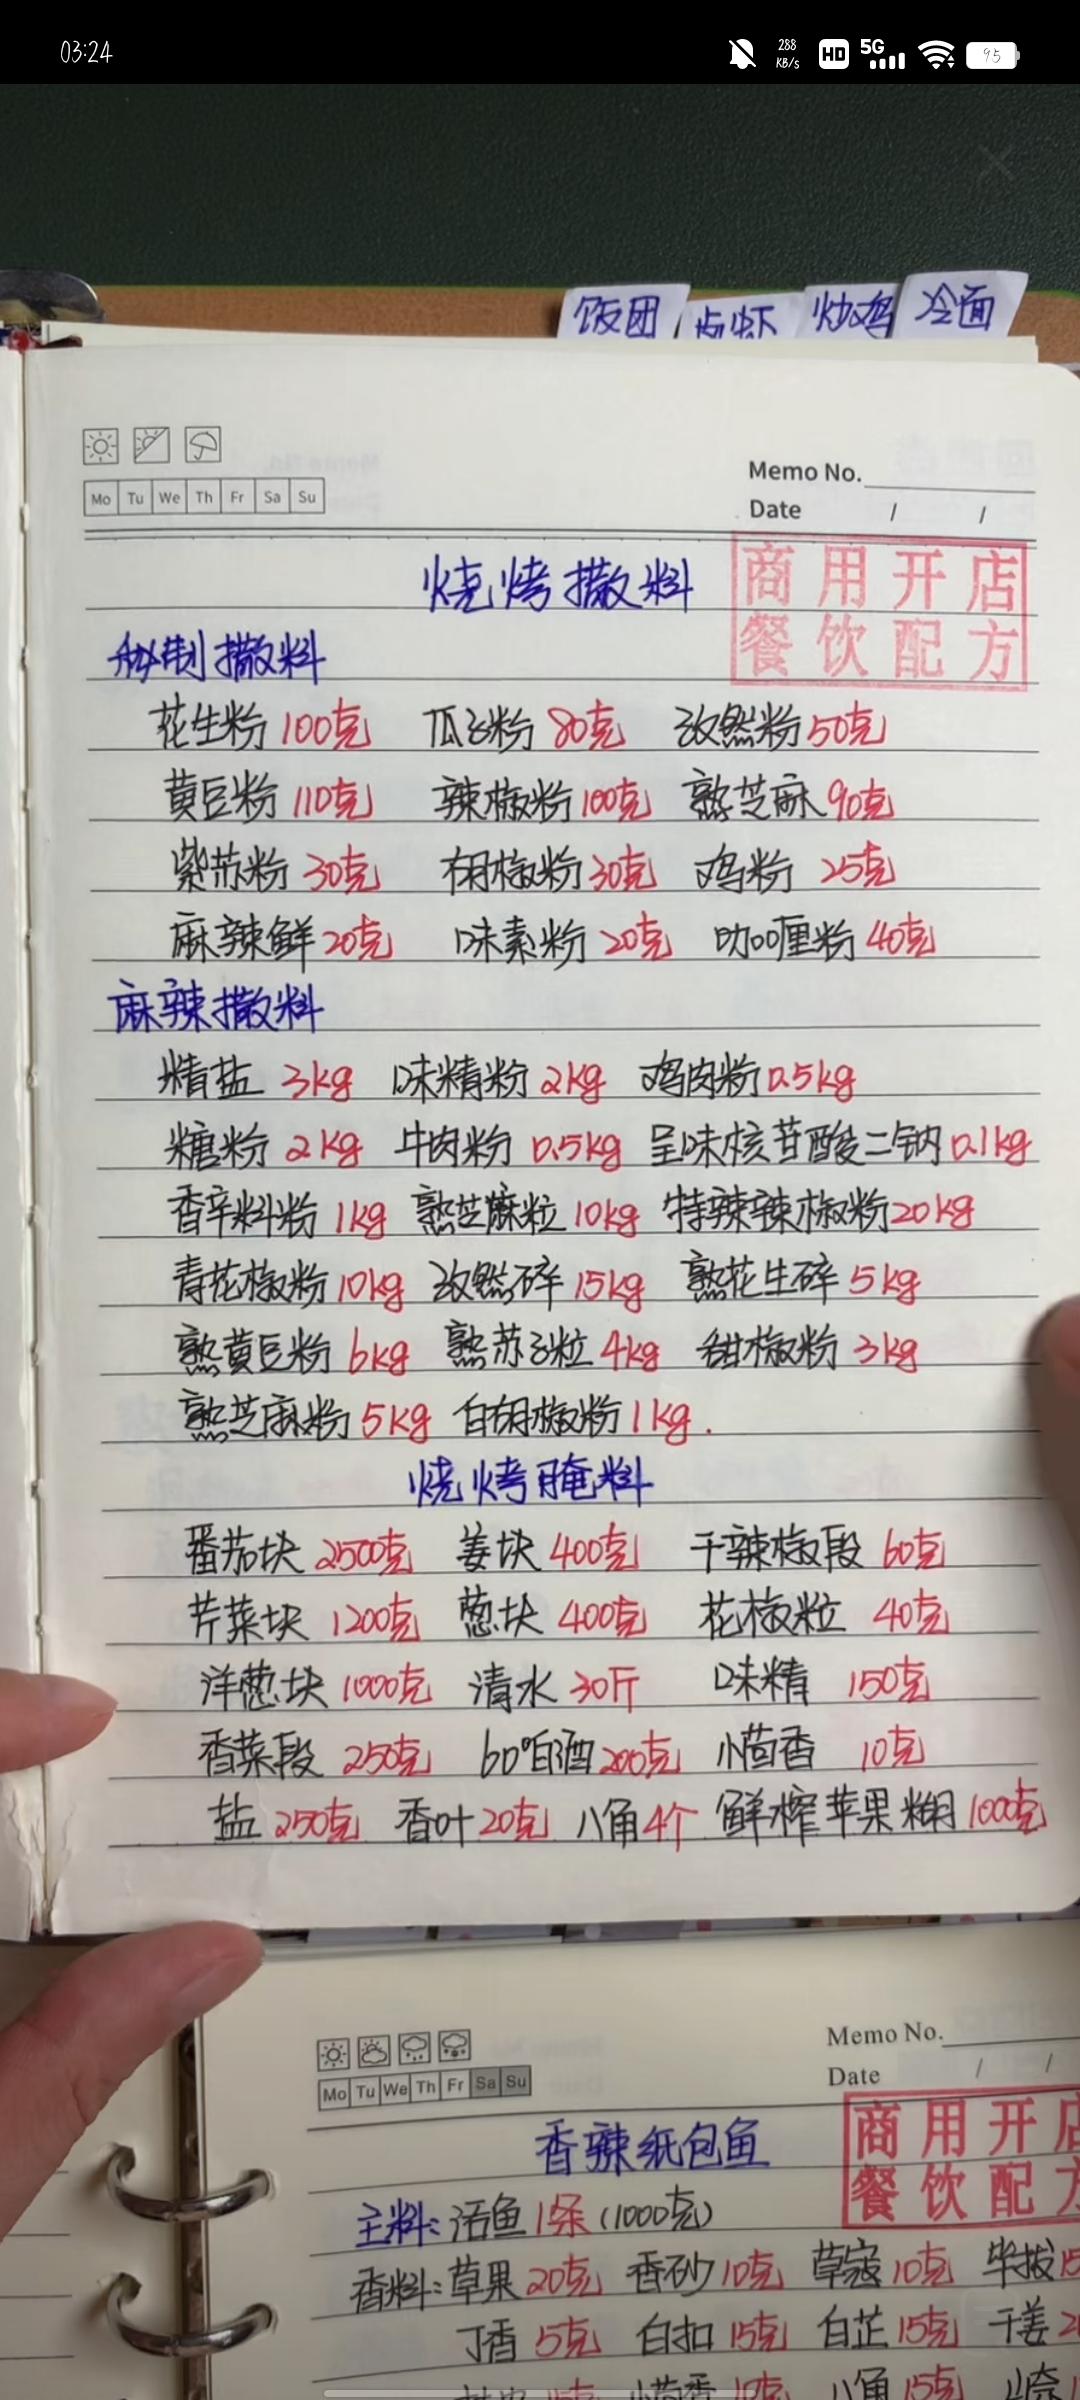 03:24
288
KB/s
HD
5G
95
饭团
卤虾
炒鸡
冷面
Memo No.
Mo Tu We Th Fr Sa Su
Date / /
商用开店
餐饮配方
烧烤撒料
秘制撒料
花生粉 100克 瓜子粉 80克 孜然粉 50克
黄豆粉 110克 辣椒粉 100克 熟芝麻 90克
紫苏粉 30克 胡椒粉 30克 鸡粉 25克
麻辣鲜 20克 味素粉 20克 咖喱粉 40克
麻辣撒料
精盐 3kg 味精粉 2kg 鸡肉粉 0.5kg
糖粉 2kg 牛肉粉 0.5kg 呈味核苷酸二钠 0.1kg
香辛料粉 1kg 熟芝麻粒 10kg 特辣辣椒粉 20kg
青花椒粉 10kg 孜然碎 15kg 熟花生碎 5kg
熟黄豆粉 6kg 熟苏子粒 4kg 甜椒粉 3kg
熟芝麻粉 5kg 白胡椒粉 1kg.
烧烤腌料
番茄块 2500克 姜块 400克 干辣椒段 60克
芹菜块 1200克 葱块 400克 花椒粒 40克
洋葱块 1000克 清水 30斤 味精 150克
香菜段 250克 60°白酒 200克 小茴香 10克
盐 250克 香叶 20克 八角 4个 鲜榨苹果糊 1000克
Memo No.
Mo Tu We Th Fr Sa Su
Date / /
商用开店
餐饮配方
香辣纸包鱼
主料: 活鱼 1条 (1000克)
香料: 草果 20克 香砂 10克 草寇 10克 毕拔
丁香 5克 白扣 15克 白芷 15克 干姜
小茴香 10克 八角 15克 山奈